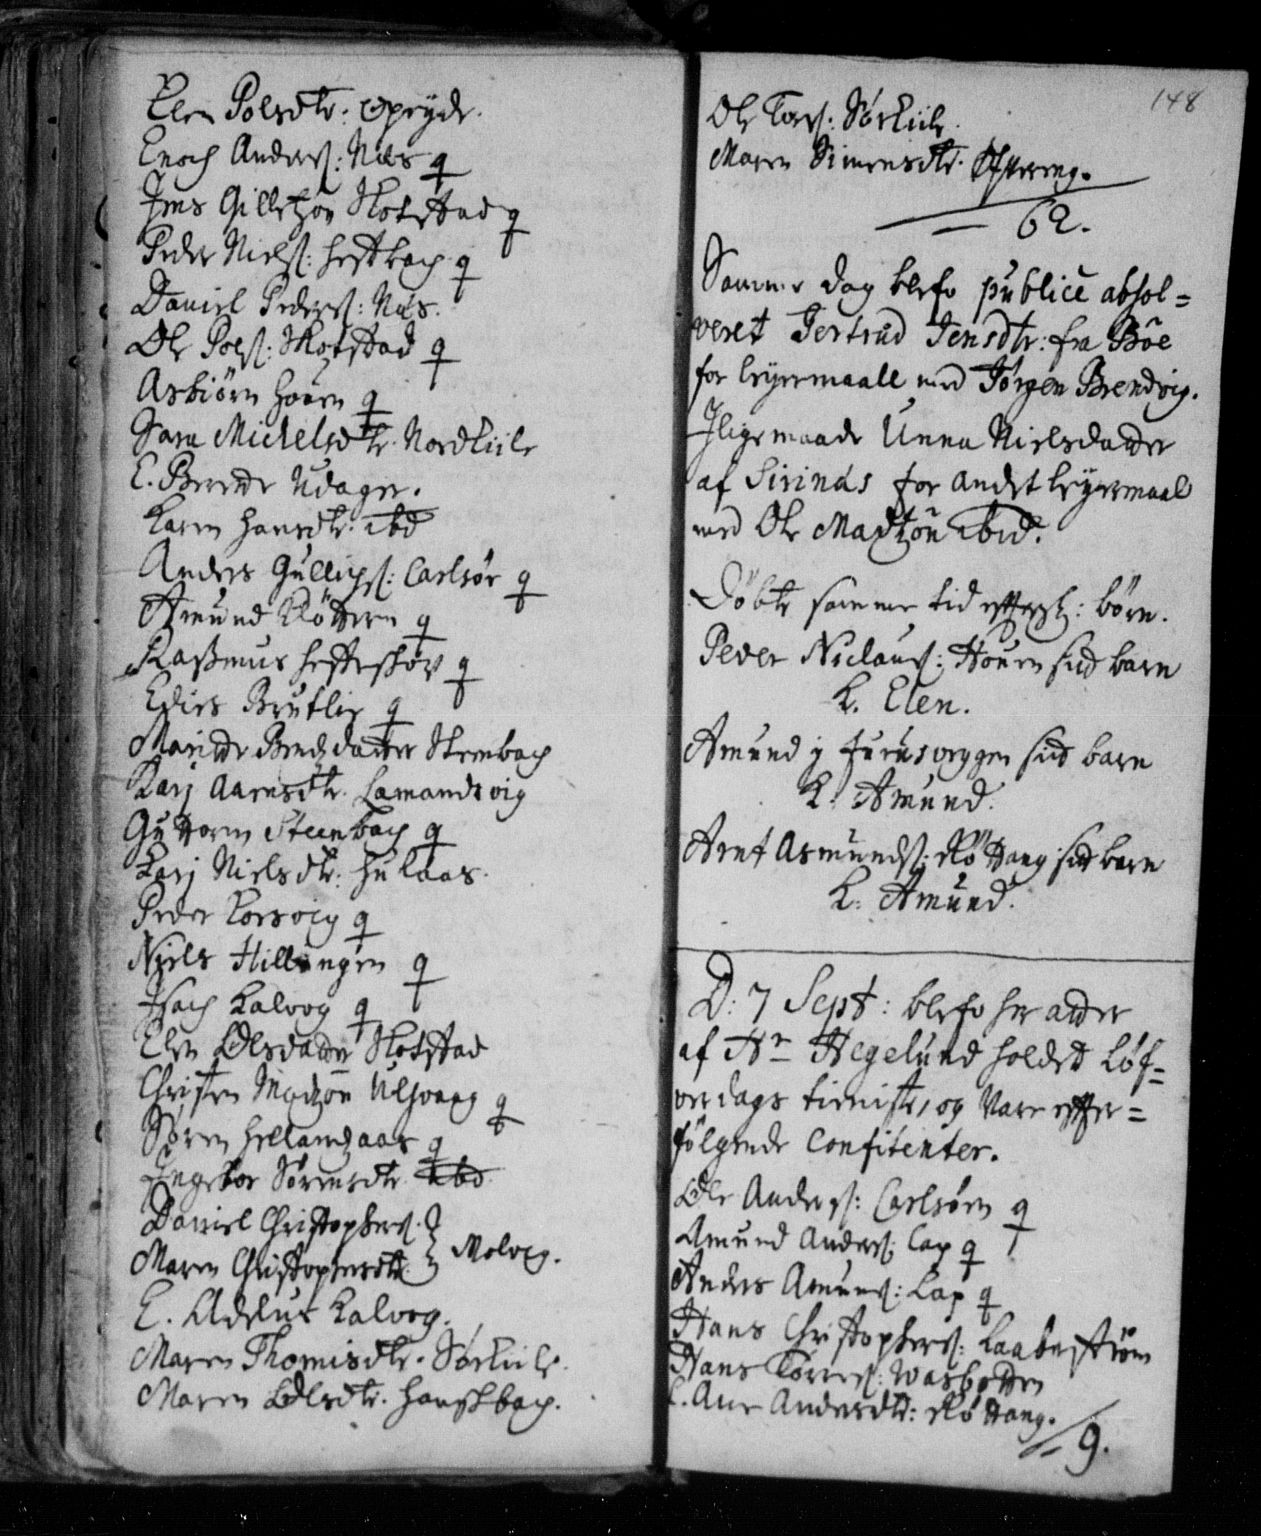 Elen Polsdtr: Opeyde.
Enoch Anders: Næs q
Jens Gilletzøn Skotstad q
Peder Niels: Hestbach q
Daniel Peders: Næs.
Ole Pols: Skotstad q
Asbiørn Houen q
Sara Michelsdtr. Nordkiile
E. Berette Udager.
Karen Hansdtr. ibd
Anders Gullichs: Carlsør q
Amund Røttern q
Rasmus Hesteskør q
Edis Brutlie q
Maritte Bendzdatter Steenbach
Karj Aarnsdtr. Lamandsvig
Guttorm Steenbach q
Karj Nielsdtr: Hulaas.
Peder Korsvig q
Niels Hillingen q
Isach Kalvog q
Elen Olsdatter Skotstad
Christen Madzøn Ulsvaag q
Søren Hellandzaas q
Ingebor Sørensdtr ibd.
Daniel Christophers.
Maren Christophersdtr. Molvig.
E. Adelus Kalvog.
Maren Thomisdtr. Sørkiile.
Maren Olsdtr. Haugsbach.
148
Ole Tors: Sørkiile.
Maren Simensdtr.
62.
Samme dag blefv publicè absol=
veret Gertrud Jensdtr: fra Böe
for leyermaall med Jørgen Brendvig.
Jligemaade Unna Nielsdatter
af Sirinæs for andet leyermaal
med Ole Madtzøn ibid.
Döbte samme tid effters: börn.
Peder Niclaus: Houen sit barn
K. Elen.
Amund j Furusveggen sit barn
K. Amund.
Arnt Asmunds: Røttang sit barn
K. Amund.
D: 7 Sept: blefv her atter
af Hr Hegelund holdet Løf=
verdags tieniste, og Vare effter=
fölgende Confitenter.
Ole Anders: Carlsøen q
Amund Anders: Lap q
Anders Amuns: Lap q
Hans Christophers: Laaberstrøm
Hans Torres: Wasbotten
E. Ane Andersdtr: Røttang.
9.